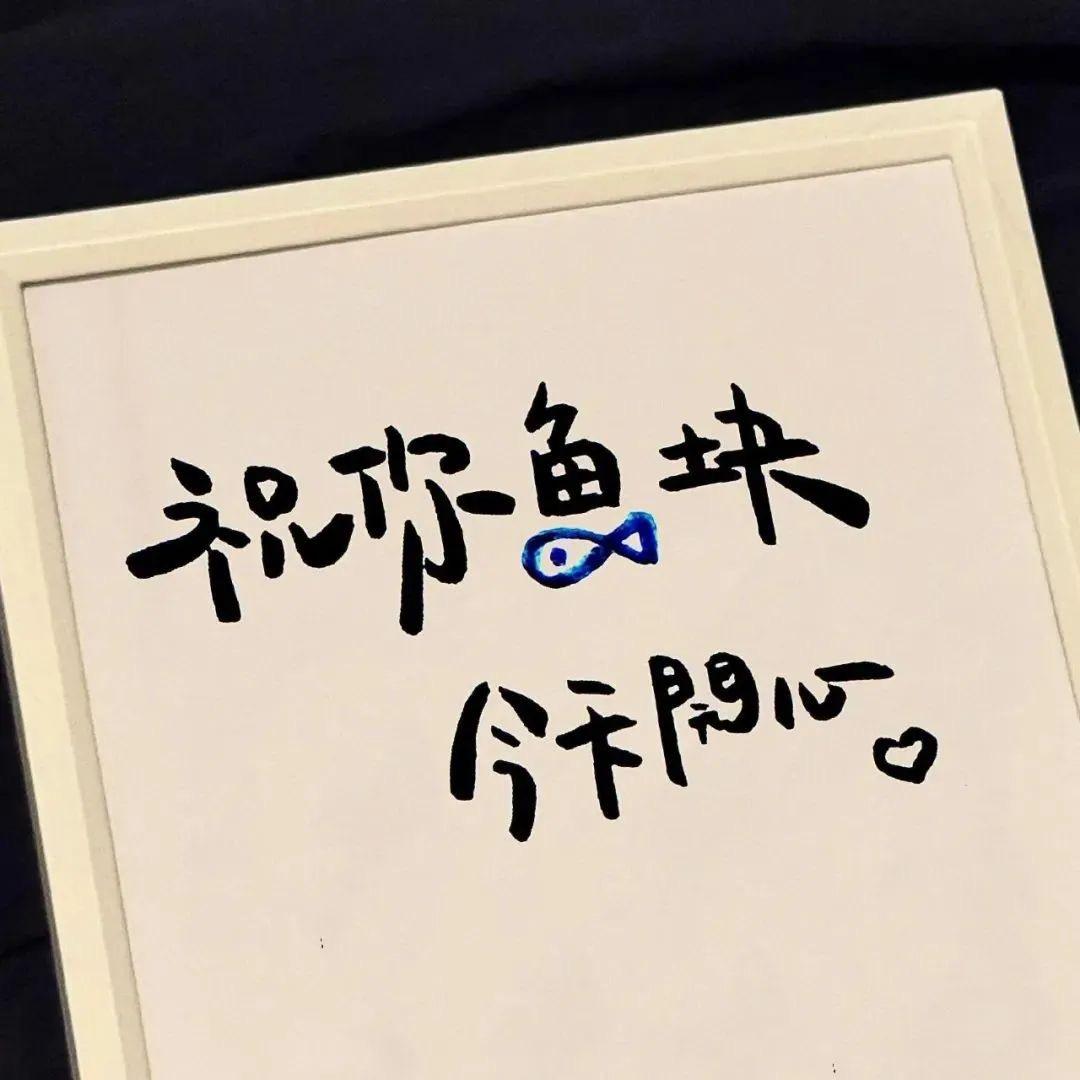 祝你鱼块
今天開心